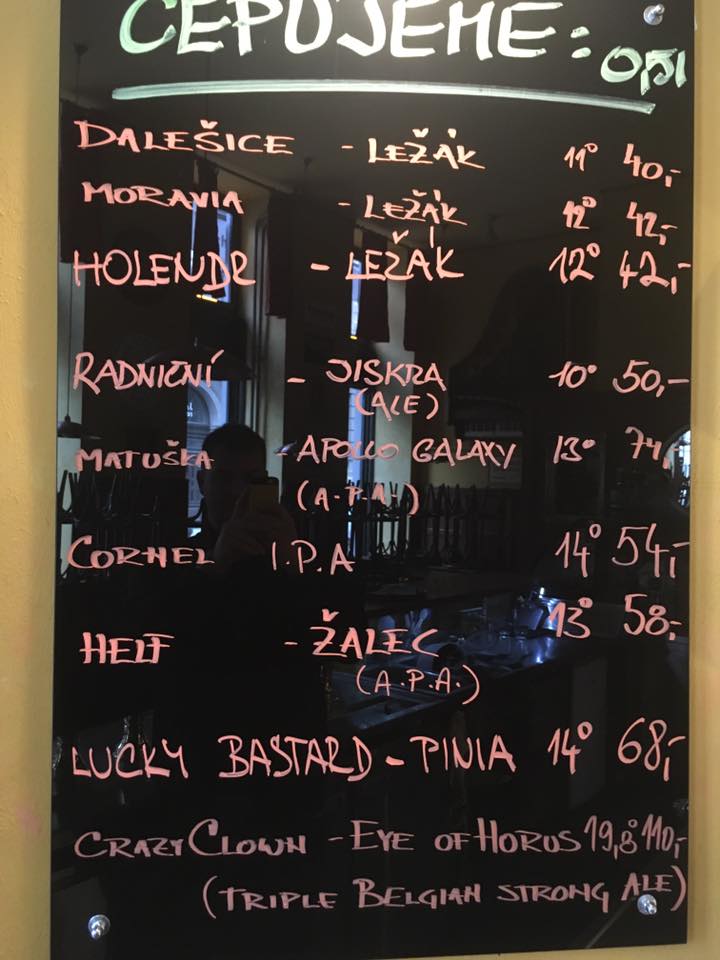 ČEPUJEME: 0,5l
DALEŠICE - LEŽÁK 11° 40,-
MORAVIA - LEŽÁK 12° 42,-
HOLENDR - LEŽÁK 12° 42,-
RADNIČNÍ - JISKRA 10° 50,-
(ALE)
MATUŠKA - APOLLO GALAXY 13° 74,-
(A.P.A.)
CORNEL I.P.A 14° 54,-
HELF - ŽALEC 13° 58,-
(A.P.A.)
LUCKY BASTARD - PINIA 14° 68,-
CRAZY CLOWN - EYE OF HORUS 19,8° 110,-
(TRIPLE BELGIAN STRONG ALE)